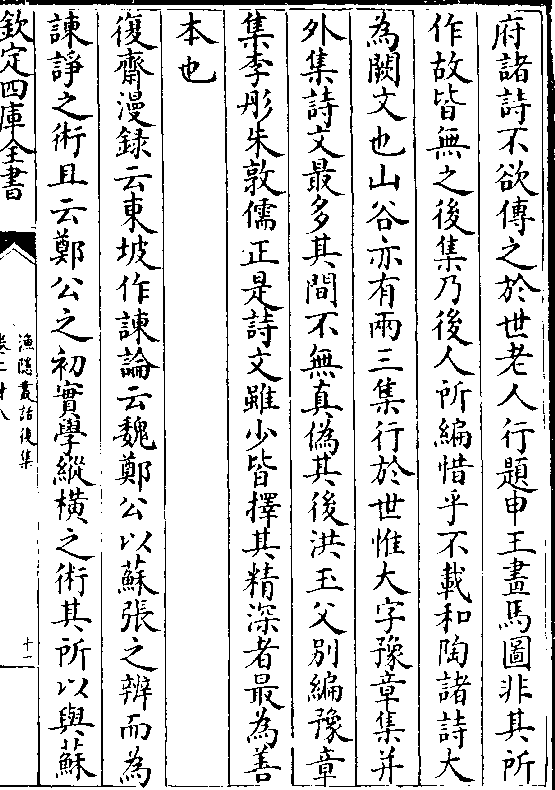 府諸詩不欲傳之於世老人行題申王畫馬圖非其所
作故皆無之後集乃後人所編惜乎不載和陶諸詩大
為闕文也山谷亦有兩三集行於世惟大字豫章集并
外集詩文最多其間不無真偽其後洪玉父別編豫章
集李彤朱敦儒正是詩文雖少皆擇其精深者最為善
本也
復齋漫録云東坡作諫論云魏鄭公以蘇張之辨而為
諫諍之術且云鄭公之初實學縱橫之術其所以與蘇
欽定四庫全書
漁隱叢話後集
卷二十八
十二